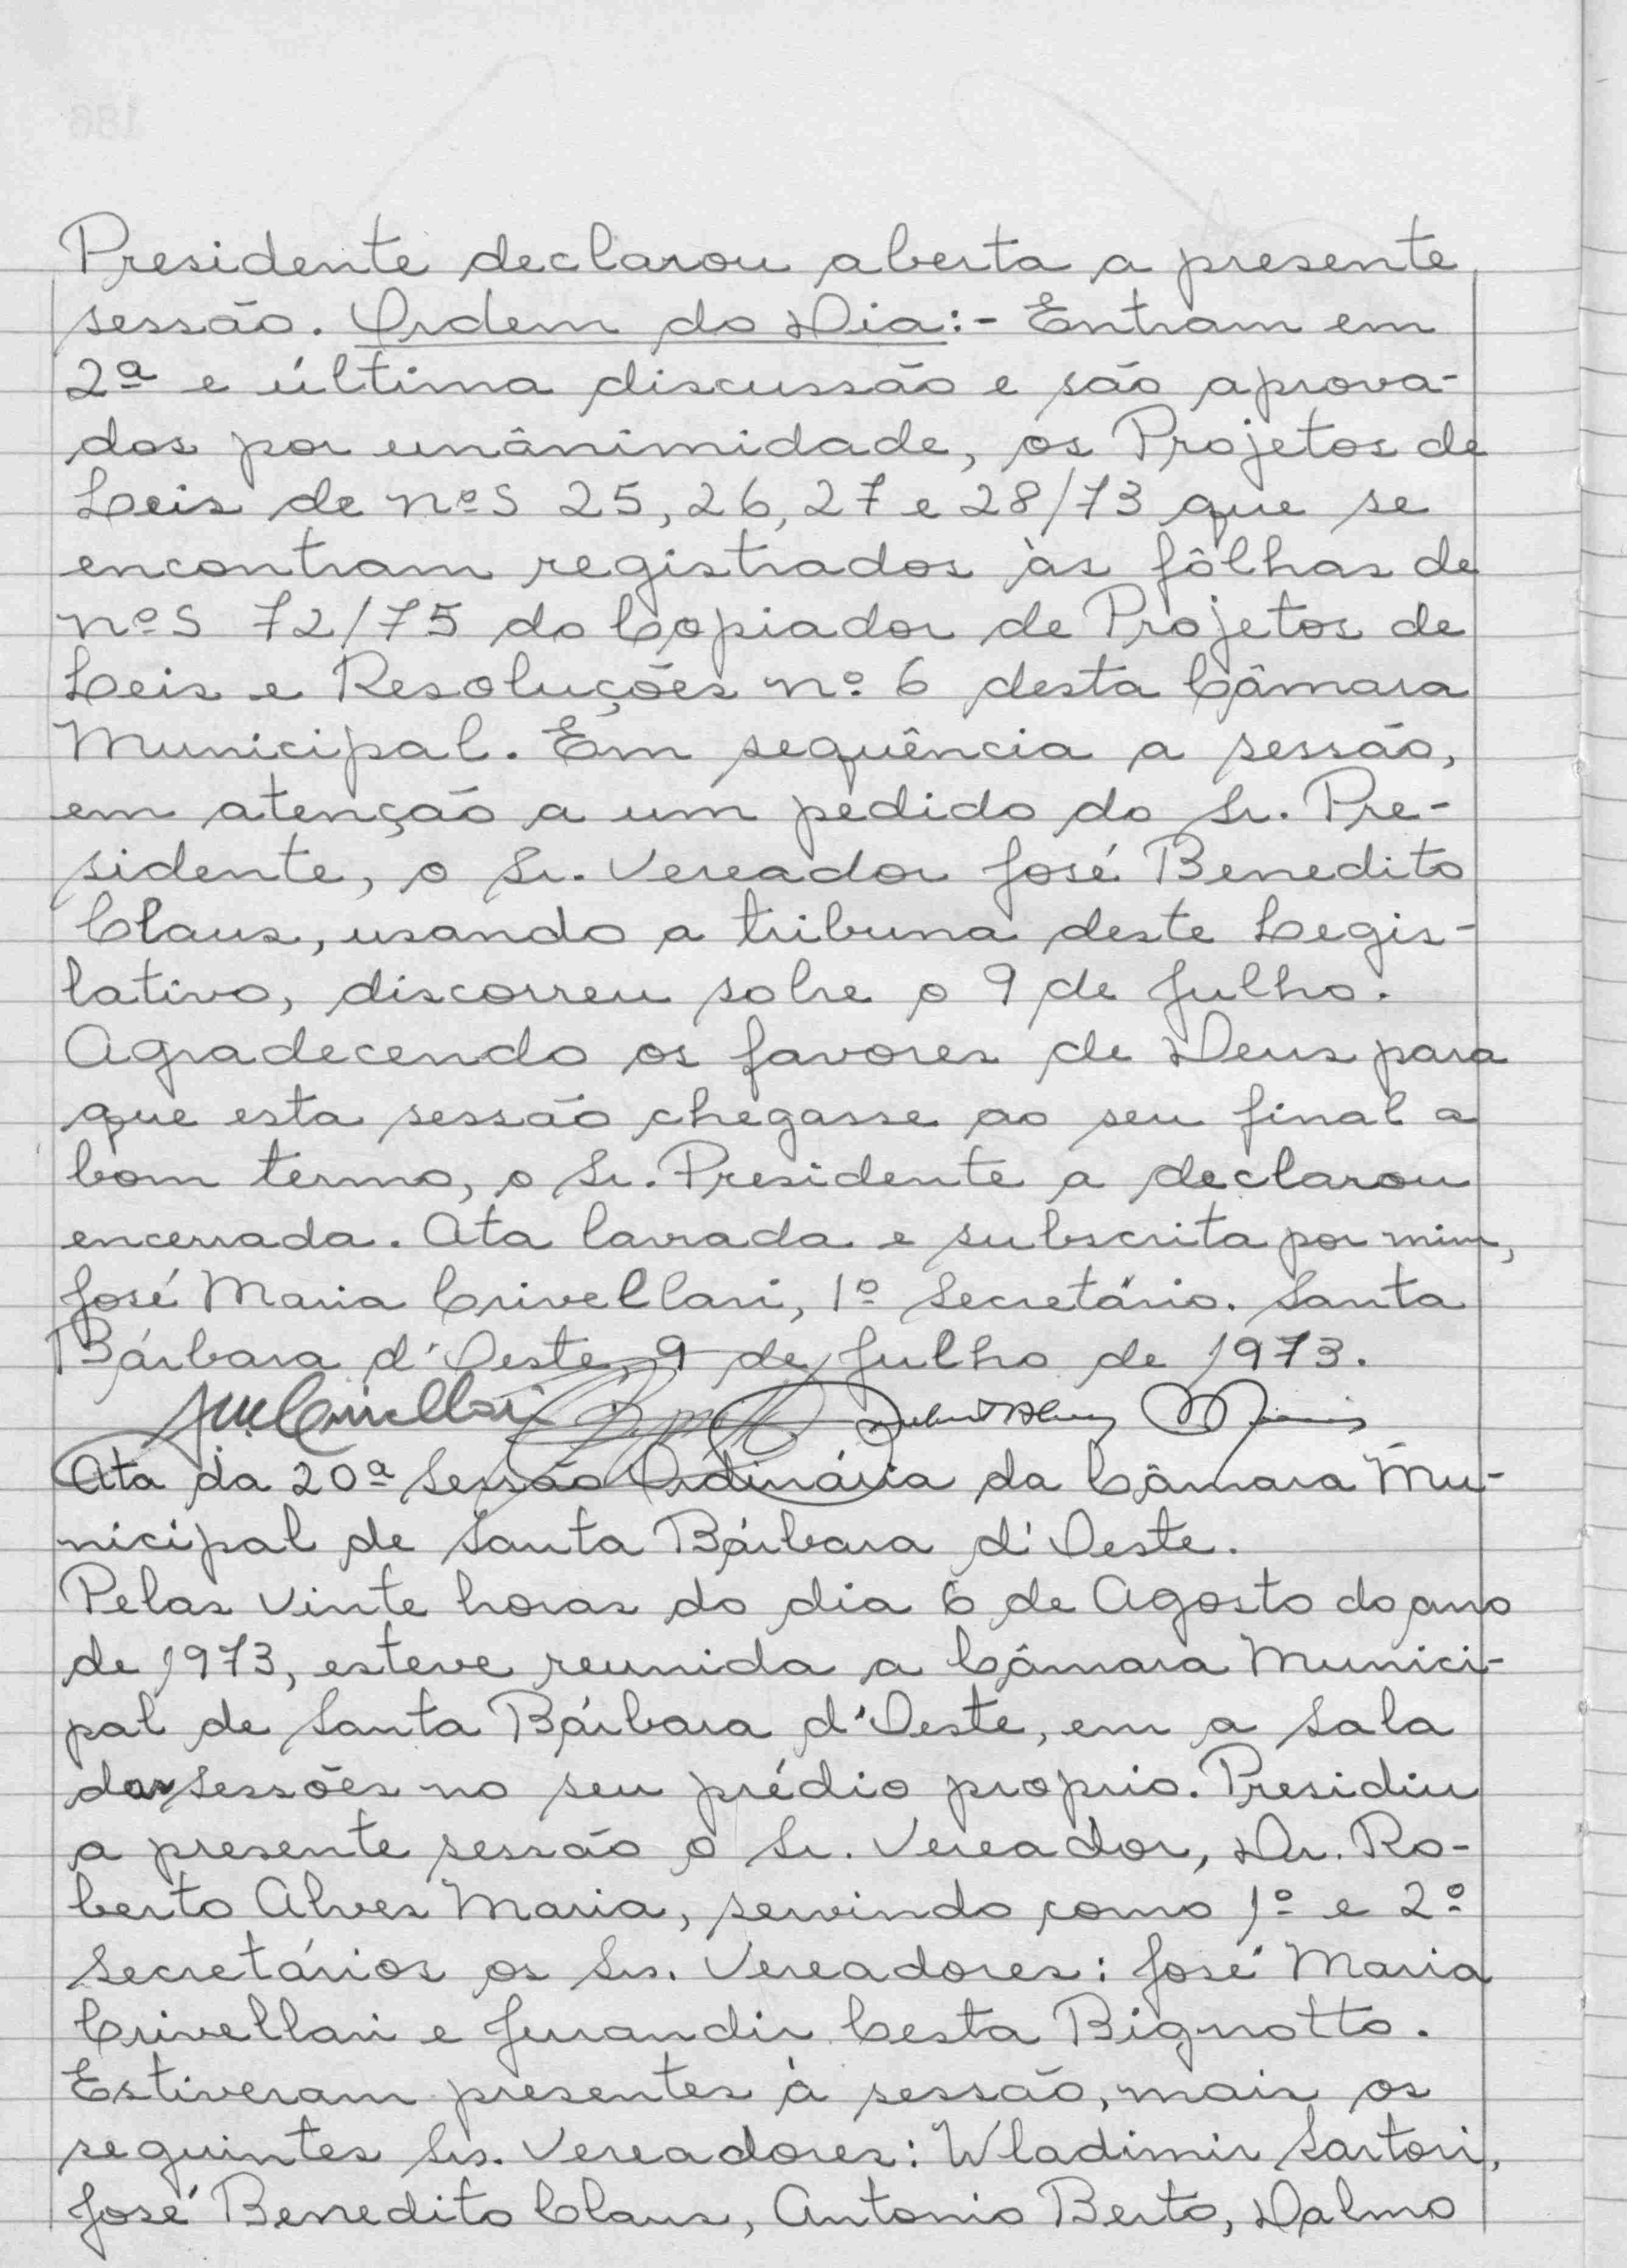 Presidente declarou aberta a presente
sessão. Ordem do Dia:- Entram em
2ª e última discussão e são aprova-
dos por unânimidade, os Projetos de
Leis de nºs 25, 26, 27 e 28/73 que se
encontram registrados às fôlhas de
nºs 72/75 do Copiador de Projetos de
Leis e Resoluções nº 6 desta Câmara
Municipal. Em sequência a sessão,
em atenção a um pedido do Sr. Pre-
sidente, o Sr. Vereador José Benedito
Claus, usando a tribuna deste Legis-
lativo, discorreu sobre o 9 de Julho.
Agradecendo os favores de Deus para
que esta sessão chegasse ao seu final a
bom termo, o Sr. Presidente a declarou
encerrada. Ata lavrada e subscrita por mim,
José Maria Crivellari, 1º Secretário. Santa
Bárbara d'Oeste, 9 de Julho de 1973.
Ata da 20ª Sessão Ordinária da Câmara Mu-
nicipal de Santa Bárbara d'Oeste.
Pelas vinte horas do dia 6 de Agosto do ano
de 1973, esteve reunida a Câmara Munici-
pal de Santa Bárbara d'Oeste, em a Sala
das Sessões no seu prédio proprio. Presidiu
a presente sessão o Sr. Vereador, Dr. Ro-
berto Alves Maria, servindo como 1º e 2º
Secretários os Srs. Vereadores: José Maria
Crivellari e Jurandir Cesta Bignotto.
Estiveram presentes à sessão, mais os
seguintes Srs. Vereadores: Wladimir Sartori,
José Benedito Claus, Antonio Berto, Dalmo